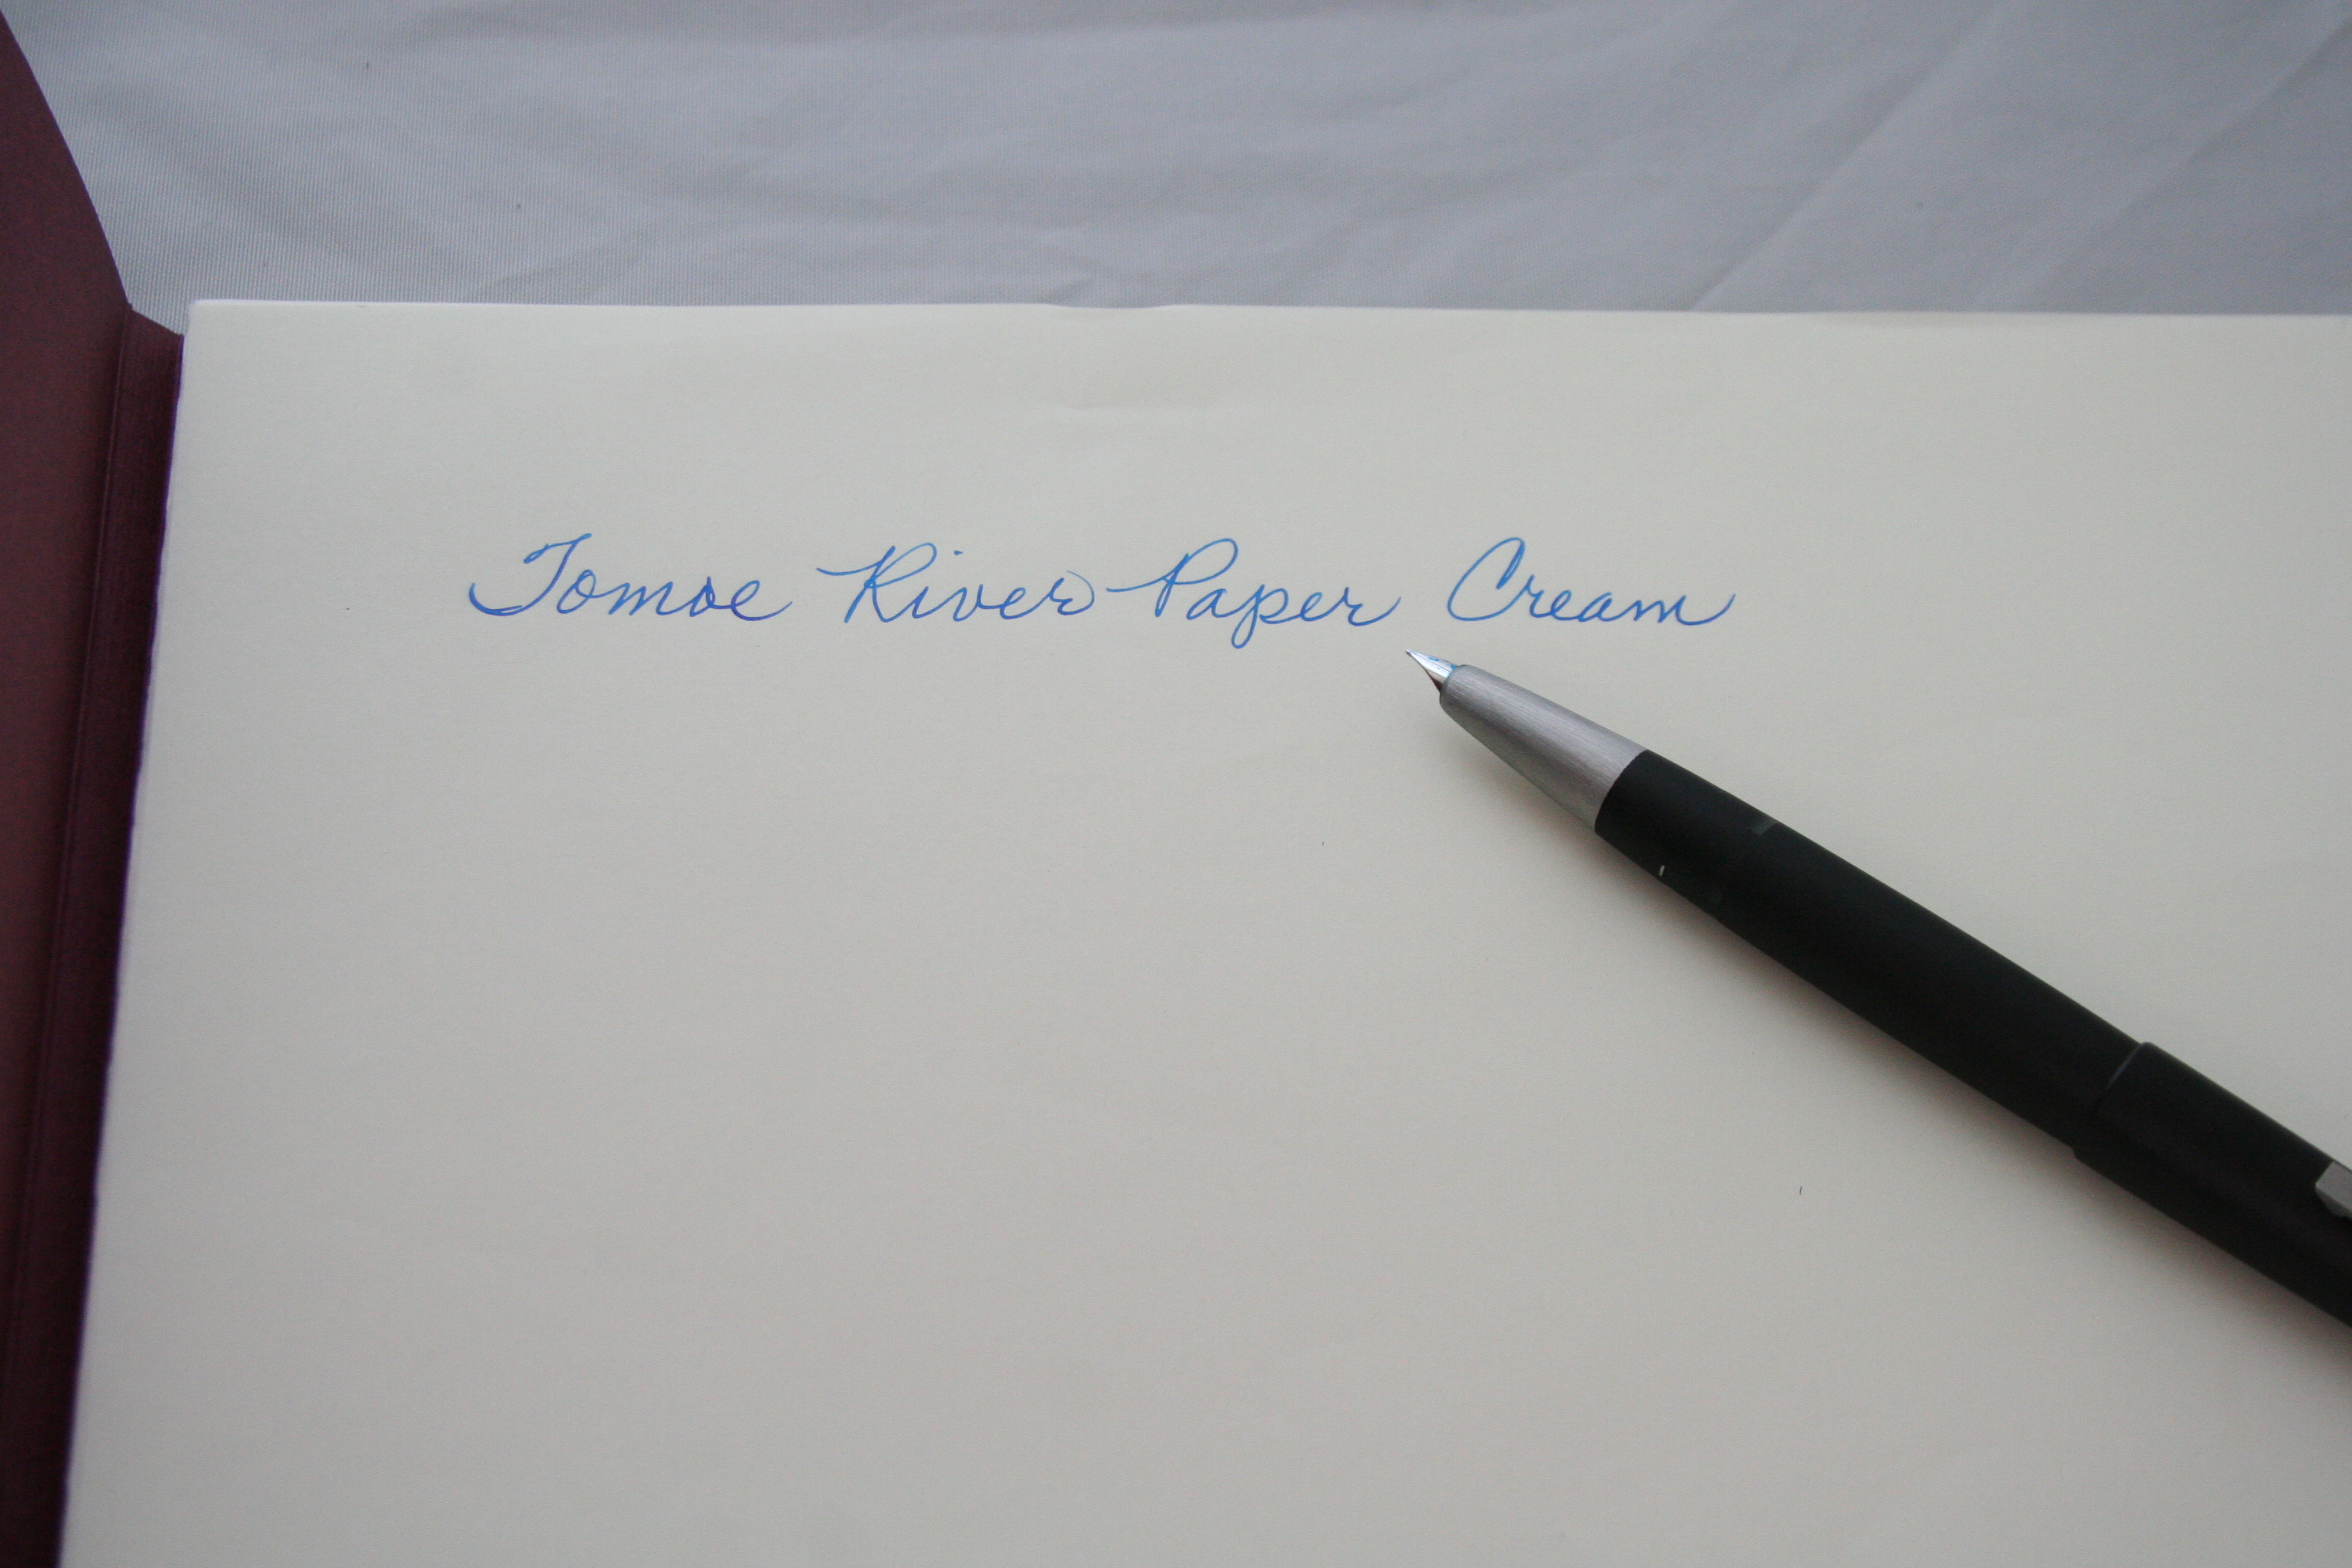 Tomoe River Paper Cream